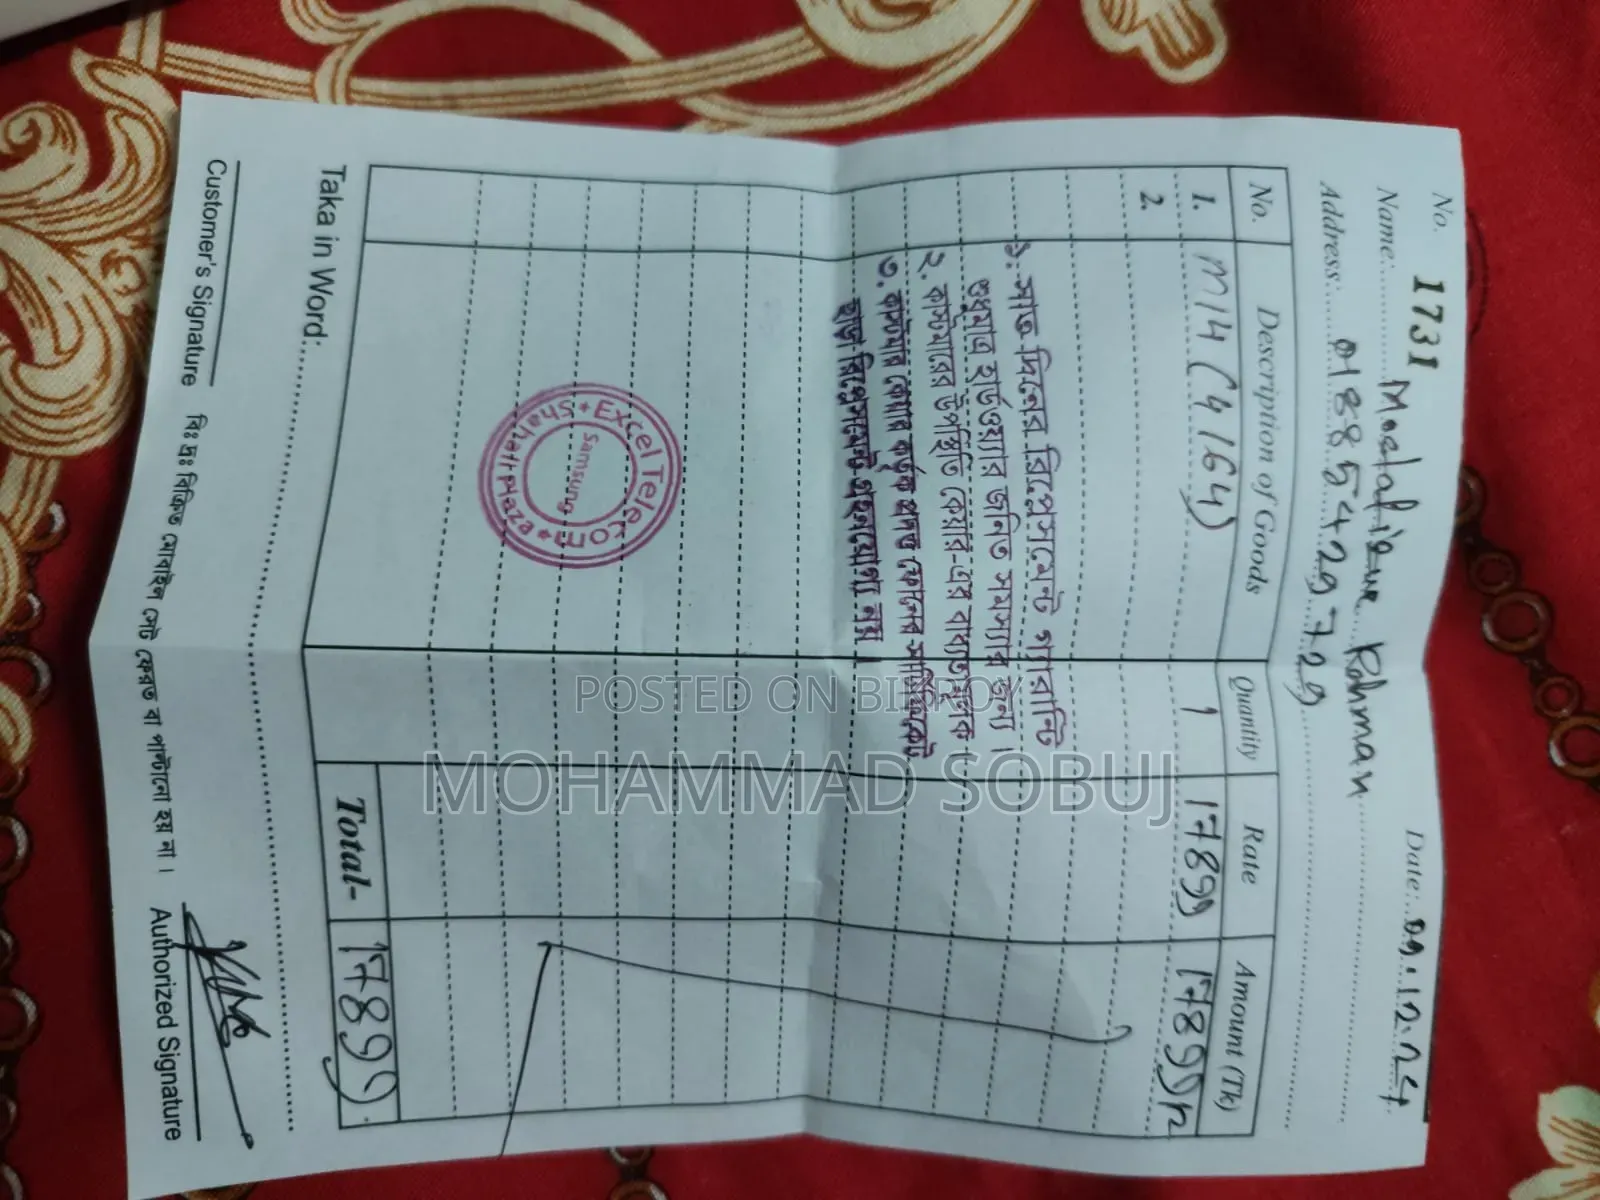 No. 1731
Date: 09.12.24
Name: Rahman
Address: 01885429729
No. Description of Goods Quantity Rate Amount (Tk)
1. M14 (4/64) 1 17899 17899
2.
১. সাত দিনের রিপ্লেসমেন্ট গ্যারান্টি
শুধুমাত্র হার্ডওয়্যার জনিত সমস্যার জন্য।
২. কাস্টমারের উপস্থিতি কেয়ার-এর বাধ্যতামূলক।
৩. কাস্টমার কেয়ার কর্তৃক প্রদত্ত ফোনের সার্টিফিকেট
ছাড়া রিপ্লেসমেন্ট গ্রহনযোগ্য নয়।
Excel Telecom
Samsung
Shah Ali Plaza
POSTED ON BIKROY
MOHAMMAD SOBUJ
Total- 17899
Taka in Word:
Customer's Signature
বিঃ দ্রঃ বিক্রিত মোবাইল সেট ফেরত বা পাল্টানো হয় না।
Authorized Signature